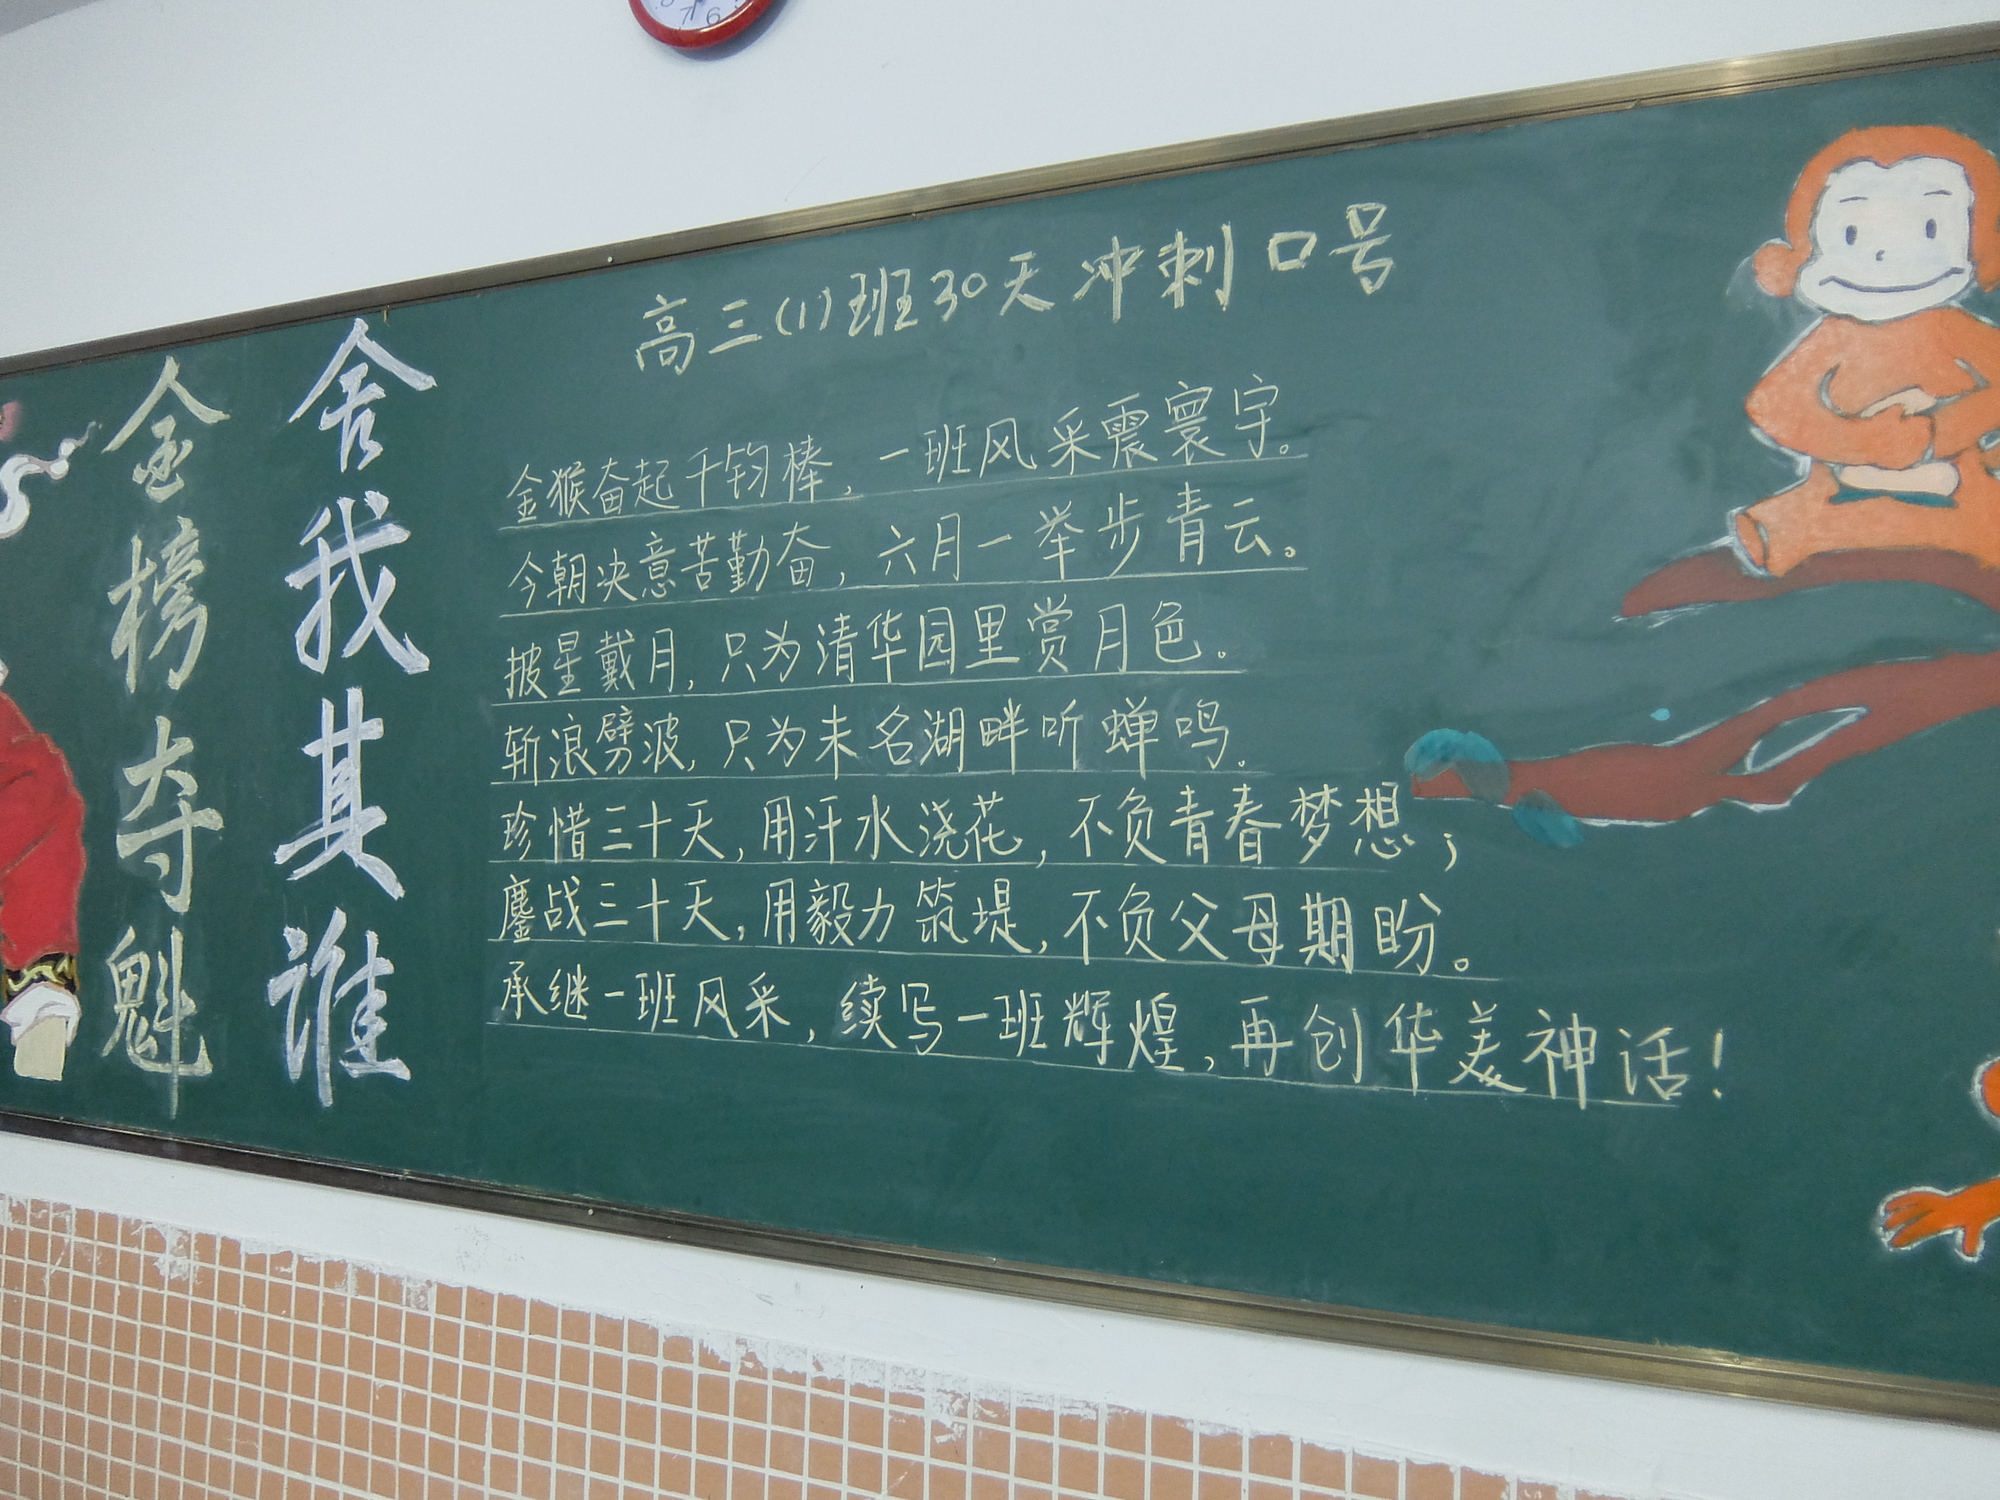 金榜夺魁
舍我其谁
高三(1)班30天冲刺口号
金猴奋起千钧棒，一班风采震寰宇。
今朝决意苦勤奋，六月一举步青云。
披星戴月，只为清华园里赏月色。
斩浪劈波，只为未名湖畔听蝉鸣。
珍惜三十天，用汗水浇花，不负青春梦想；
鏖战三十天，用毅力筑堤，不负父母期盼。
承继一班风采，续写一班辉煌，再创华美神话！